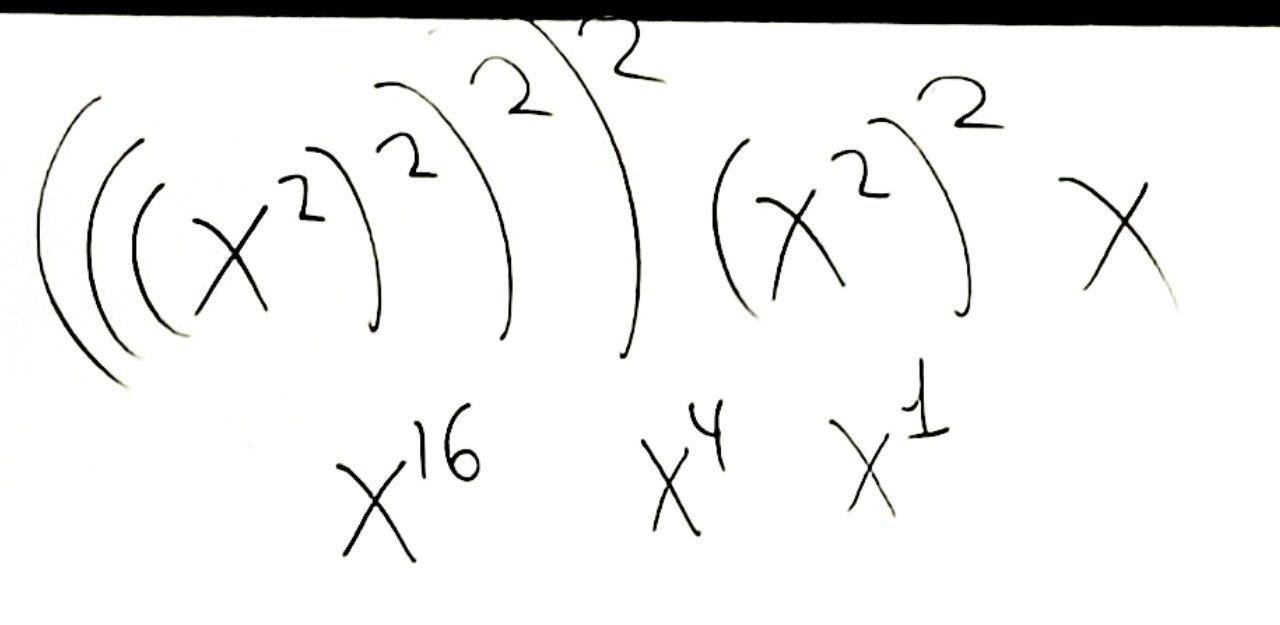 (((x²)²)²)² (x²)² x
x¹⁶ x⁴ x¹